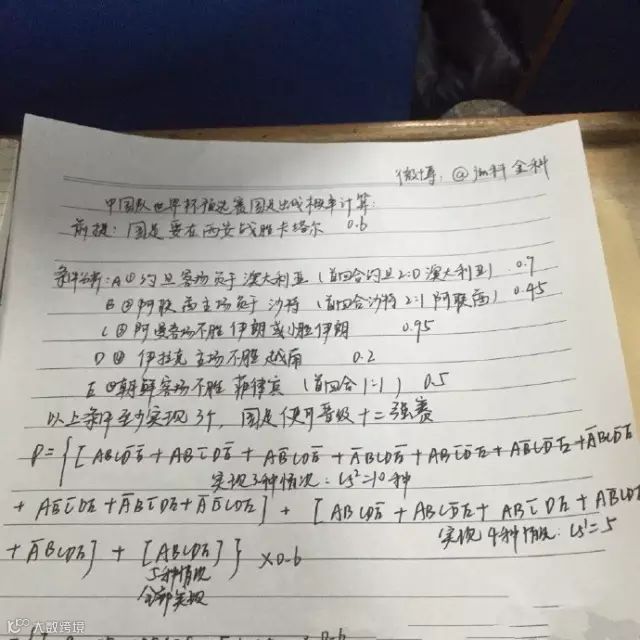 微博：@
中国队世界杯预选赛国足出线概率计算：
前提：国足要在西安战胜卡塔尔 0.6
条件分析：A① 约旦客场负于澳大利亚（首回合约旦2:0澳大利亚） 0.7
B② 阿联酋主场负于沙特（首回合沙特2:1阿联酋） 0.45
C③ 阿曼客场不胜伊朗或小胜伊朗 0.95
D④ 伊拉克主场不胜越南 0.2
E⑤ 朝鲜客场不胜菲律宾（首回合1:1） 0.5
以上条件至少实现3个，国足便可晋级十二强赛
P={[ABCD̅E̅ + ABC̅DE̅ + AB̅CDE̅ + A̅BCDE̅ + ABC̅D̅E + AB̅CD̅E + A̅BCD̅E
实现3种情况：C₅²=10种
+ AB̅C̅DE + A̅BC̅DE + A̅B̅CDE] + [ABCDE̅ + ABCD̅E + ABC̅DE + AB̅CDE
实现4种情况：C₅¹=5
+ A̅BCDE] + [ABCDE]} ×0.6
5种情况
全部实现
×0.6
大数跨境